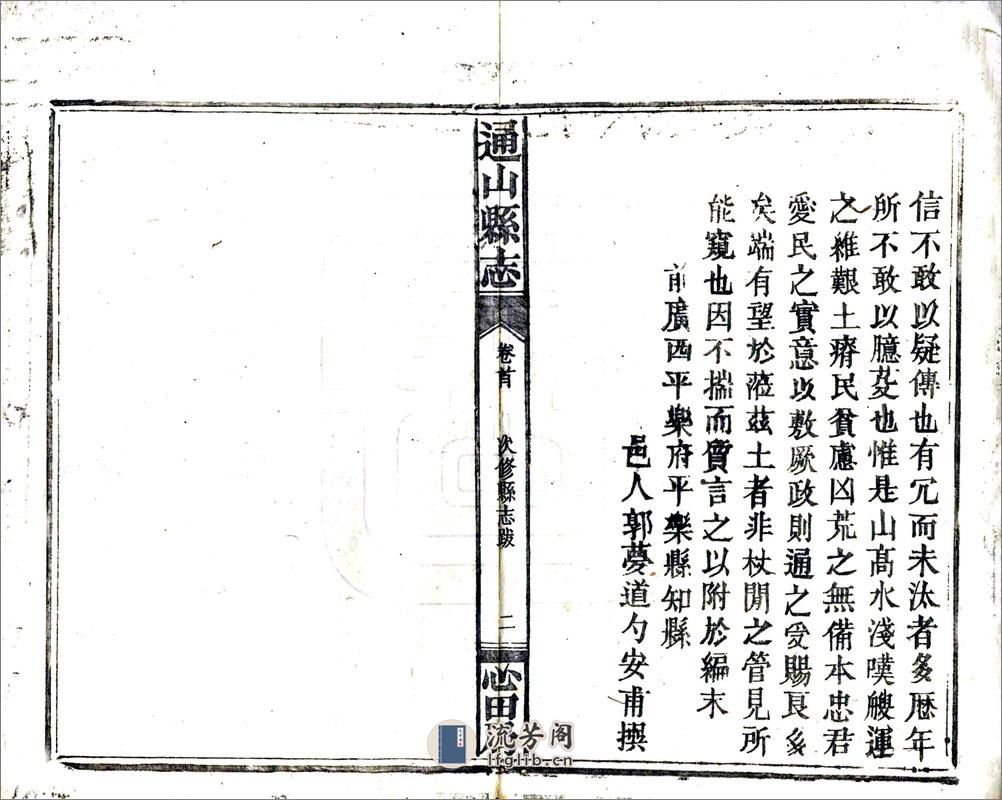 信不敢以疑傳也有冗而未汰者多歷年
所不敢以臆芟也惟是山高水淺嘆艘運
之維艱土瘠民貧慮凶荒之無備本忠君
愛民之實意以敷厥政則通之受賜良多
矣端有望於蒞茲土者非杖閒之管見所
能窺也因不揣而質言之以附於編末
前廣西平樂府平樂縣知縣
邑人郭夢道勺安甫撰
通山縣志
卷首
次修縣志跋
二
心田
流芳阁
lfglib.cn